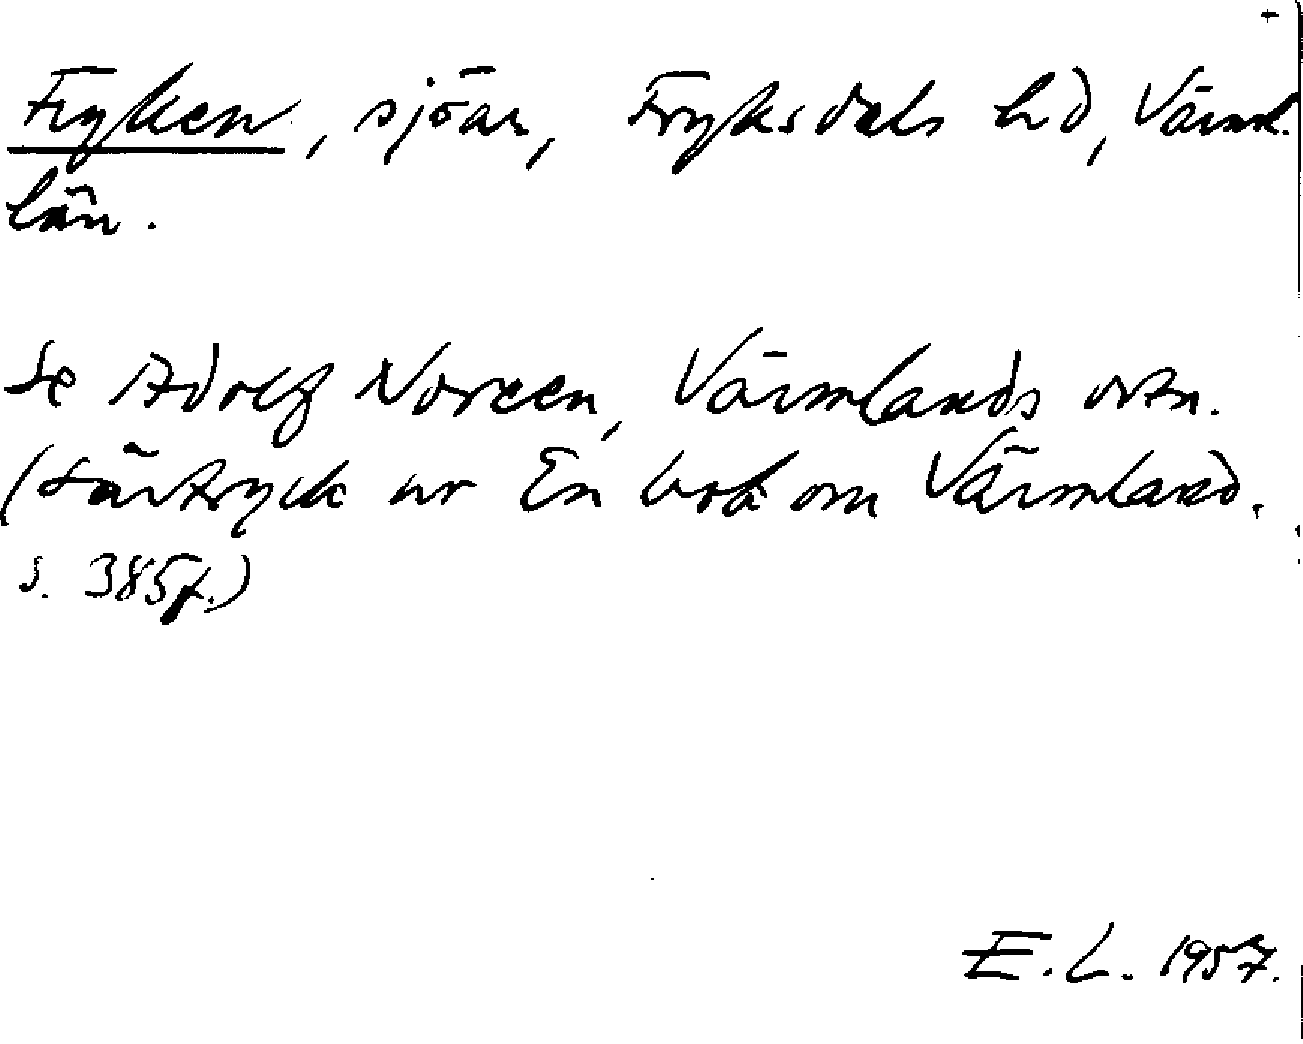 Fryken, sjöar, Fryksdals hd, Värml.
län.
Se Adolf Noreen, Värmlands ortn.
(Särtryck ur En bok om Värmland.
s. 385f.)
E.L. 1957.